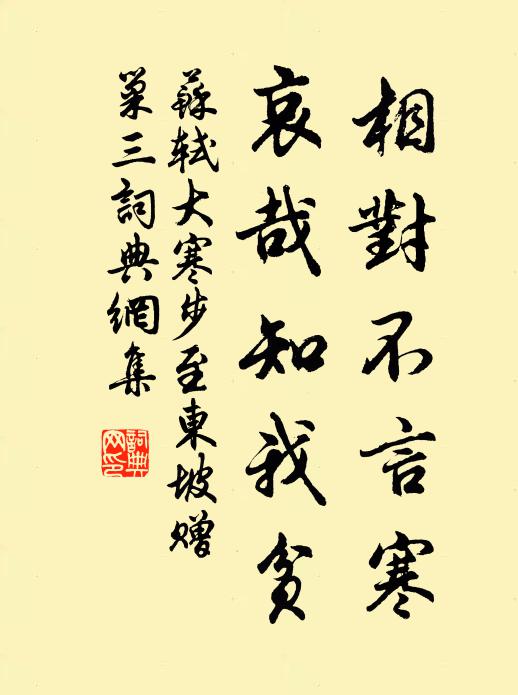 相對不言寒
哀哉知我貧
蘇軾大寒步至東坡贈
巢三詞典網集
詞典
网印